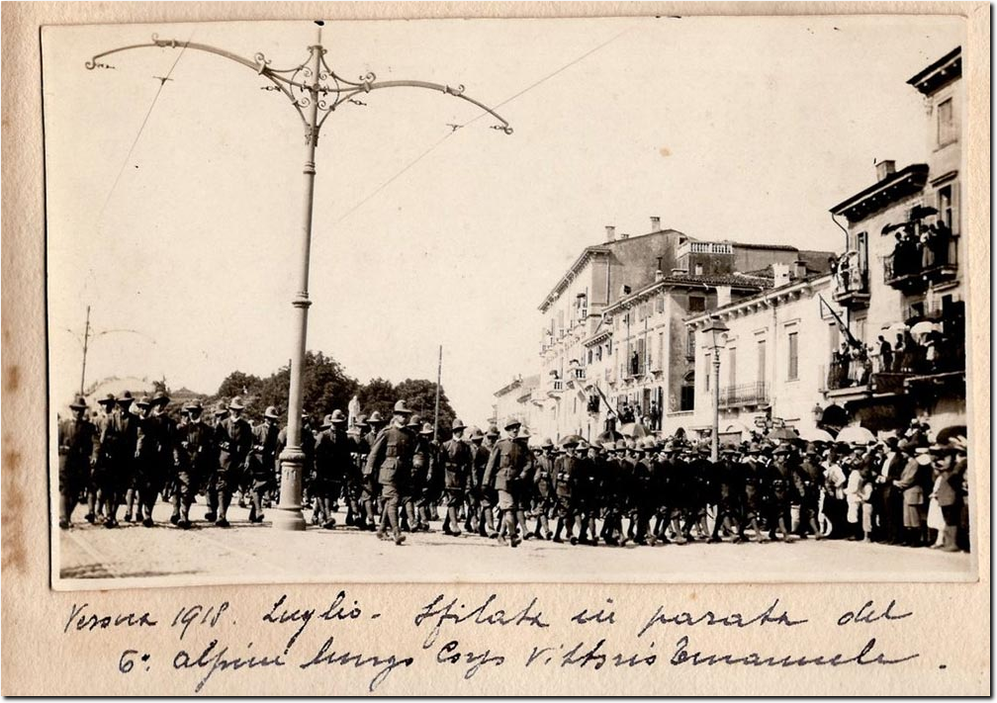 Verona 1918. Luglio - Sfilata in parata del
6°. alpini lungo Corso Vittorio Emanuele .